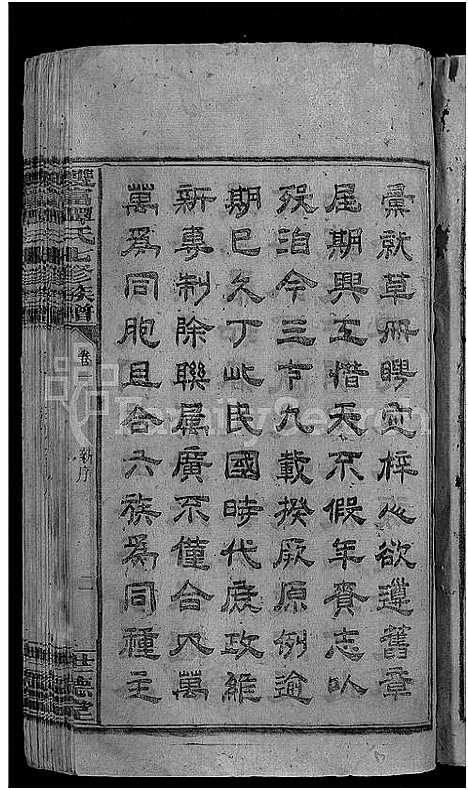 彙就草冊聘定梓心欲遵舊章
屆期興工惜天不假年賚志臥
歿洎今三十九載揆厥原例逾
期已久丁此民國時代庶政維
新專制除聯屬廣不僅合萬
萬為同胞且合六族為同種主
譚氏七修族譜
卷
序
二
德堂
FamilySearch